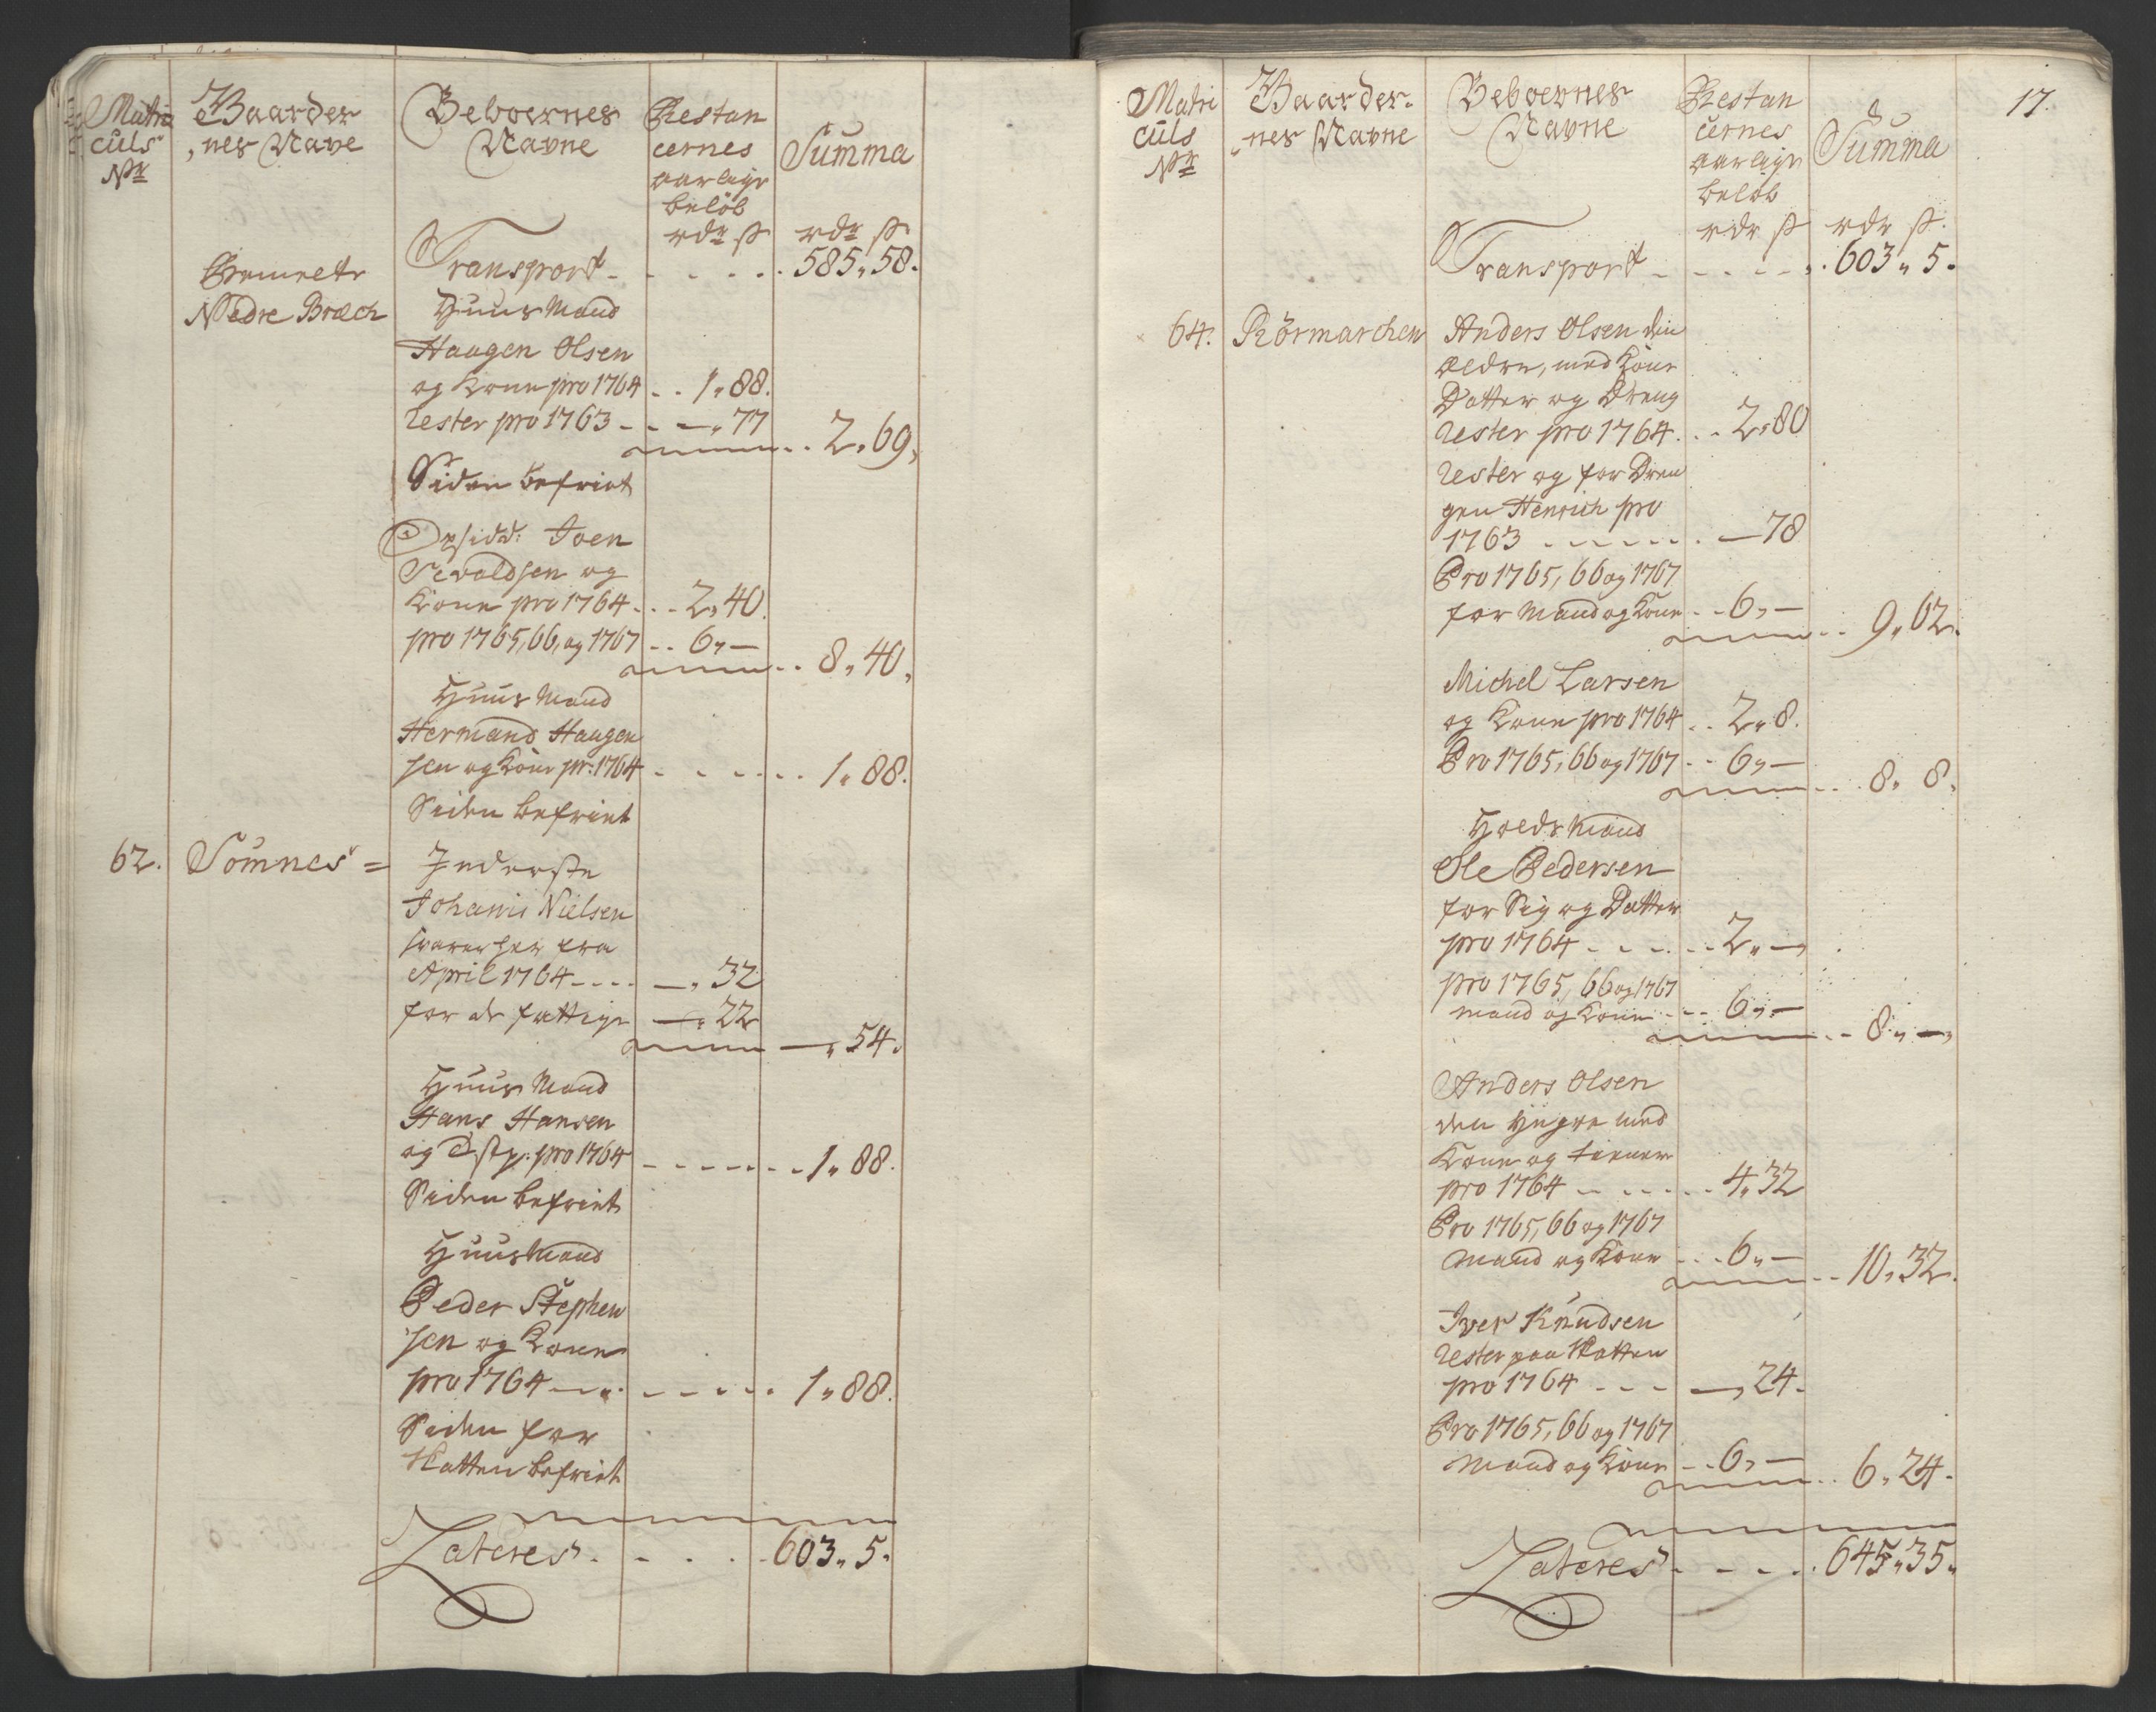 Matri
culs
Nr
Gaarder
nes Nave
Beboernes
Navne
Restan
cernes
aarlige
beløb
rdr ß
Summa
rdr ß
Transport - - - - - 585 „ 58.
Nedre Bræch
Huus Mand
Haagen Olsen
og Kone pro 1764 - - 1 „ 88.
Rester pro 1763 - - — „ 77
2 „ 69,
Siden befriet
Opsidd: Joen
Sivaldsen og
Kone pro 1764 - - - 2 „ 40.
pro 1765, 66, og 1767 - - 6 „ —
8 „ 40,
Huus Mand
Hermand Haagen
sen og Kone pr: 1764 - - - - - - 1 „ 88.
Siden befriet
62. Sømnes =
Inderste
Johanis Nielsen
svarer her fra
April 1764 - - - - — „ 32
for de fattige — „ 22
— „ 54.
Huus Mand
Hans Hansen
og pro 1764 - - - - - - - 1 „ 88.
Siden befriet
Huus Mand
Peder Stephen
sen og Kone
pro 1764 - - - - - - - 1 „ 88.
Siden for
Skatten befriet
Lateres - - - - 603 „ 5.
17.
Matri
culs
Nr
Gaarder-
nes Navne
Beboernes
Navne
Restan
cernes
aarlige
beløb
rdr ß
Summa
rdr ß.
Transport - - - - - 603 „ 5.
64. Rörmarchen
Anders Olsen den
ældre, med Kone
Datter og Dreng
Rester pro 1764. - - 2 „ 80
Rester og for Dren
gen Henrich pro
1763 - - - - - - — 78
Pro 1765, 66 og 1767
for Mand og Kone - - 6 „ —
9 „ 62.
Michel Larsen
og Kone pro 1764 - - 2 „ 8.
Pro 1765, 66 og 1767 - - 6 „ —
8 „ 8,
Ole Pedersen
for Sig og Datter
pro 1764 - - - - - 2 „ —
pro 1765, 66 og 1767
mand og Kone - - - 6 „ —
8 „ —
Anders Olsen
den yngre med
Kone og tiener
pro 1764 - - - - - - 4 „ 32
Pro 1765, 66 og 1767
Mand og Kone - - - 6 „ —
10 „ 32.
Iver Knudsen
Rester paa Skatten
pro 1764 - - - — „ 24.
Pro 1765, 66 og 1767
Mand og Kone - - 6 „ —
6 „ 24.
Lateres - - - - 645 „ 35.